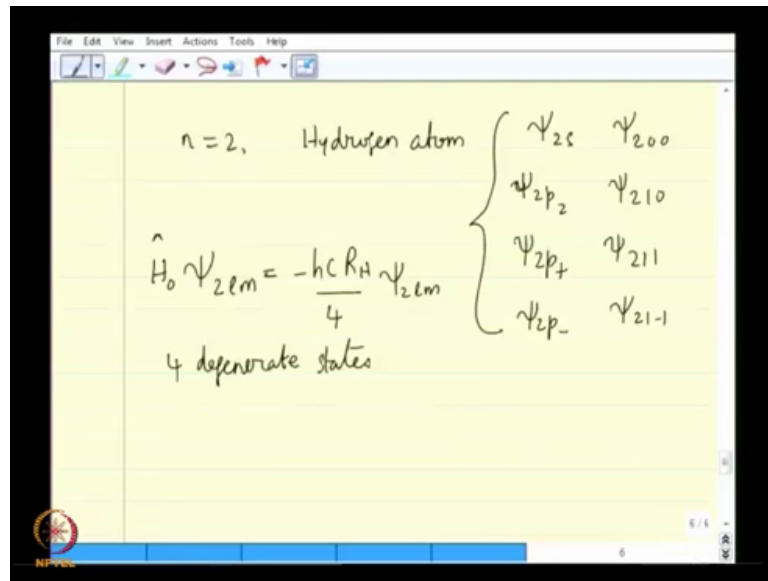 File Edit View Insert Actions Tools Help
n = 2, Hydrogen atom
Ψ₂ₛ Ψ₂₀₀
Ψ₂ₚ₂ Ψ₂₁₀
Ψ₂ₚ₊ Ψ₂₁₁
Ψ₂ₚ₋ Ψ₂₁₋₁
Ĥ₀ Ψ₂ₗₘ = -hC R_H / 4 Ψ₂ₗₘ
4 degenerate states
6 / 6
6
NPTEL